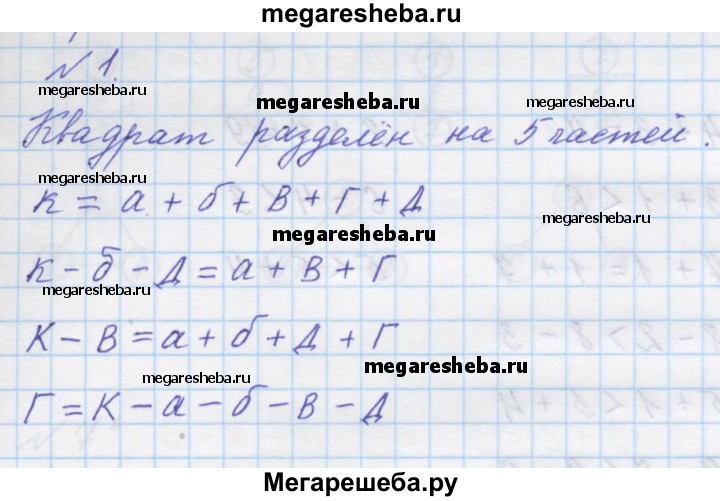 megaresheba.ru
№ 1.
megaresheba.ru
megaresheba.ru
megaresheba.ru
Квадрат разделён на 5 частей.
megaresheba.ru
К = а + б + В + Г + Д
megaresheba.ru
megaresheba.ru
К - б - Д = а + В + Г
megaresheba.ru
К - В = а + б + Д + Г
megaresheba.ru
megaresheba.ru
Г = К - а - б - В - Д
Мегарешеба.ру